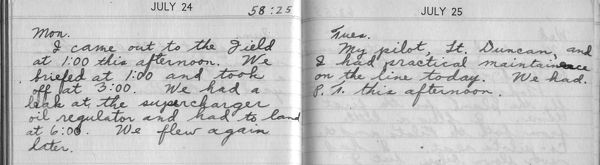 JULY 24
58:25
Mon.
I came out to the field
at 1:00 this afternoon. We
briefed at 1:00 and took
off at 3:00. We had a
leak at the supercharger
oil regulator and had to land
at 6:00. We flew again
later.
JULY 25
Tues.
My pilot, Lt. Duncan, and
I had practical maintainence
on the line today. We had
P. T. this afternoon.